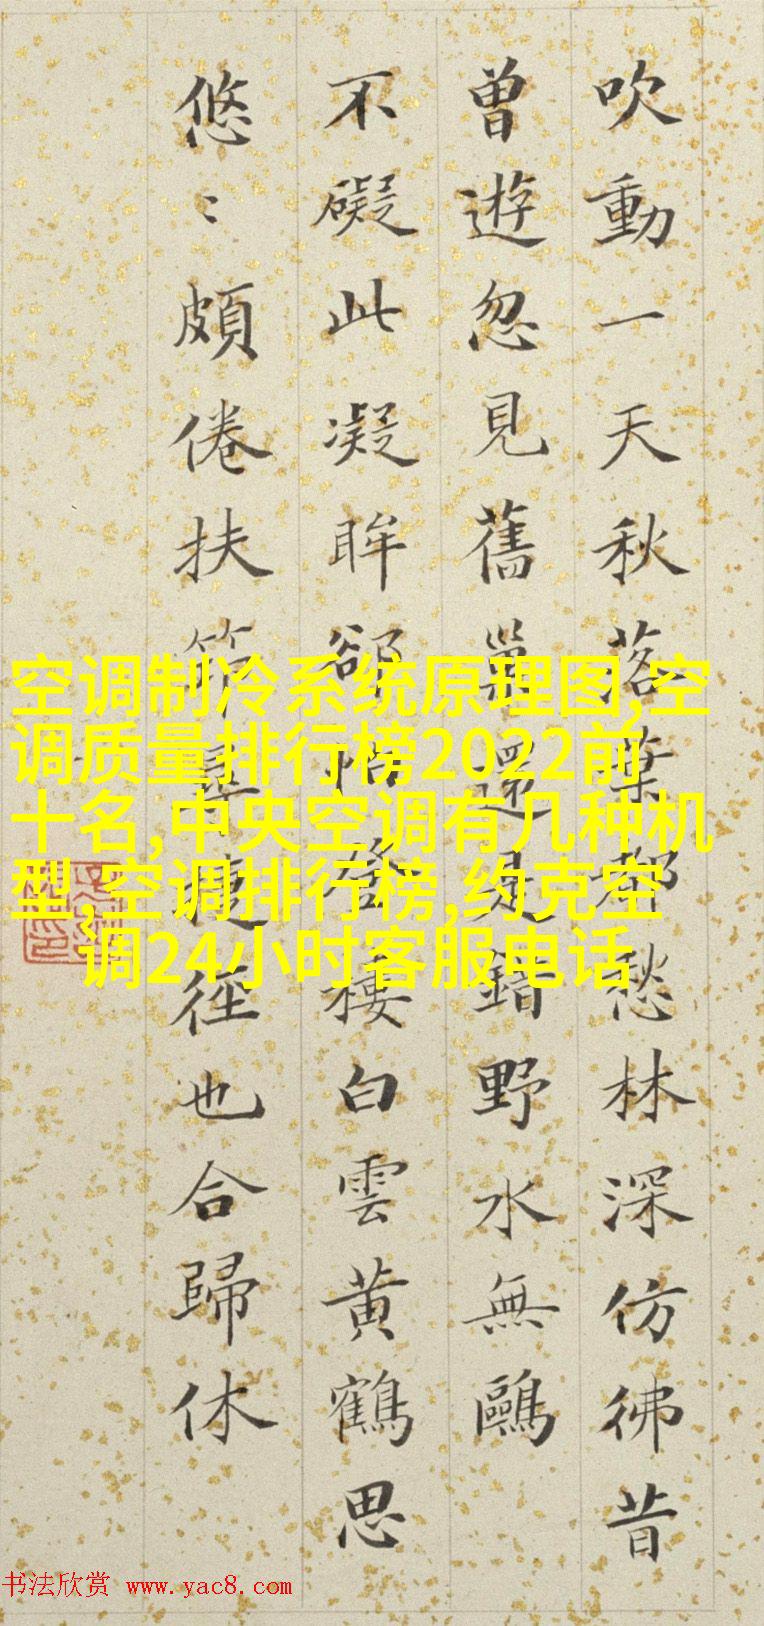 吹動一天秋落葉都愁林深仿彿昔
曾遊忽見舊巢還是錯野水無鷗
不礙此凝眸卻怕登樓白雲黃鶴思
悠〻頗倦扶筇尋捷徑也合歸休
空调制冷系统原理图,空
调质量排行榜2022前
十名,中央空调有几种机
型,空调排行榜,约克空
调24小时客服电话
书法欣赏 www.yac8.com